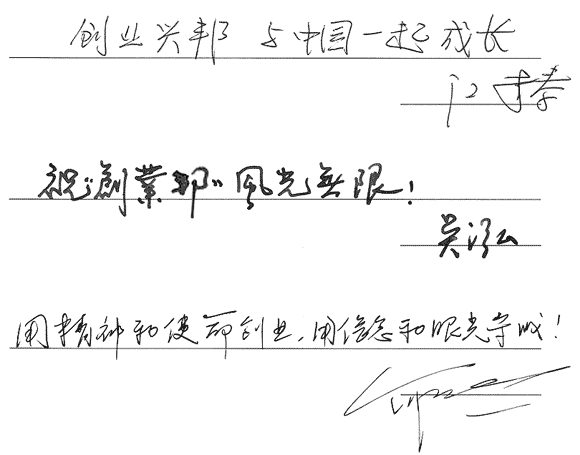 创业兴邦 与中国一起成长
祝“創業邦”風光無限！
吴泓
用精神和使命创业，用信念和眼光守城！